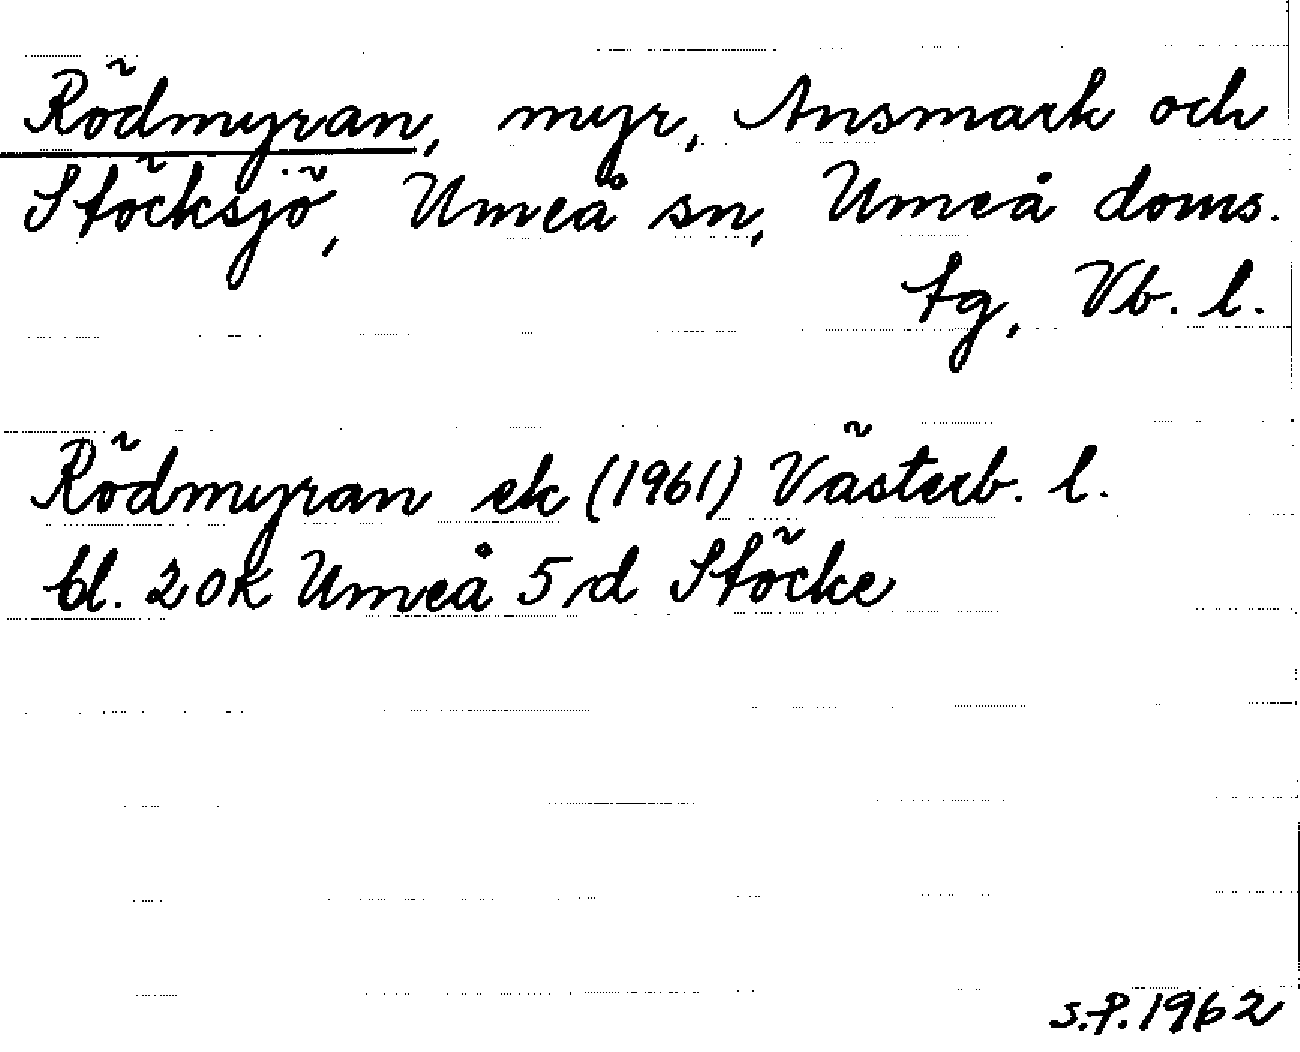 Rödmyran, myr, Ansmark och
Stöcksjö, Umeå sn, Umeå doms.
tg, Vb. l.
Rödmyran ek (1961) Västerb. l.
bl. 20K Umeå 5 d Stöcke
s.f. 1962